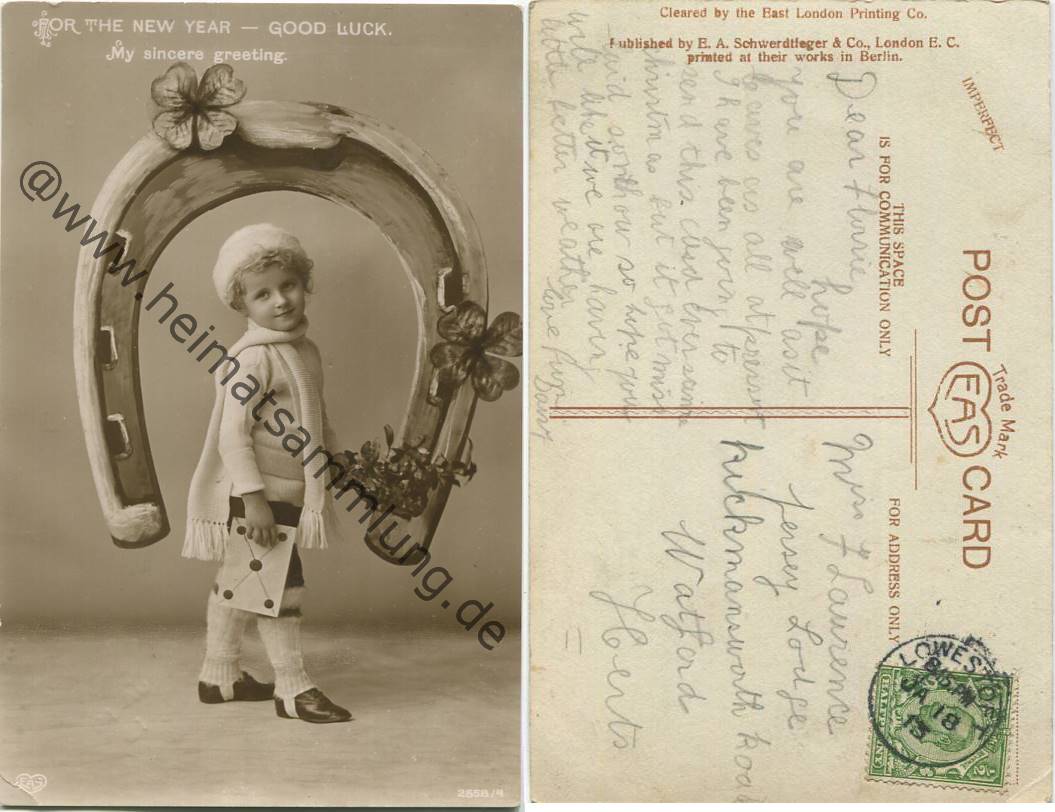 FOR THE NEW YEAR — GOOD LUCK.
My sincere greeting.
@www.heimatsammlung.de
EAS
2558/4
Cleared by the East London Printing Co.
Published by E. A. Schwerdtfeger & Co., London E. C.
printed at their works in Berlin.
IMPERFECT
POST CARD
Trade Mark
EAS
THIS SPACE
IS FOR COMMUNICATION ONLY
FOR ADDRESS ONLY
Dear Florie
hope
you are well as it
leaves us all at present
I have been going to
send this card ever since
Christmas but it got miss
laid somhow so hope you
will like it we are having
better weather
love from
Daisy
Miss F Laurence
Jersey Lodge
Rickmansworth Road
Watford
Herts
LOWESTOFT
JA 18
13
HALF PENNY
1/2